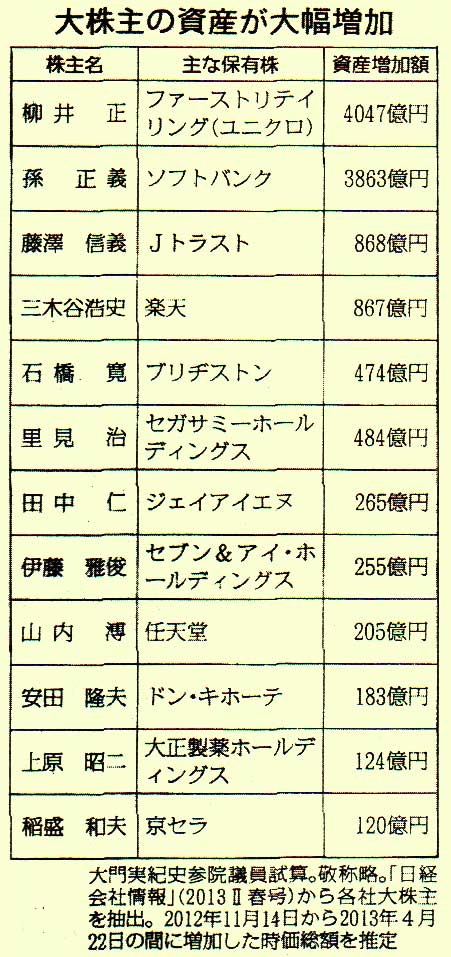 大株主の資産が大幅増加
株主名 主な保有株 資産増加額
柳井 正 ファーストリテイリング(ユニクロ) 4047億円
孫 正義 ソフトバンク 3863億円
藤澤 信義 Jトラスト 868億円
三木谷浩史 楽天 867億円
石橋 寛 ブリヂストン 474億円
里見 治 セガサミーホールディングス 484億円
田中 仁 ジェイアイエヌ 265億円
伊藤 雅俊 セブン&アイ・ホールディングス 255億円
山内 溥 任天堂 205億円
安田 隆夫 ドン・キホーテ 183億円
上原 昭二 大正製薬ホールディングス 124億円
稲盛 和夫 京セラ 120億円
大門実紀史参院議員試算。敬称略。「日経
会社情報」(2013Ⅱ春号)から各社大株主
を抽出。2012年11月14日から2013年4月
22日の間に増加した時価総額を推定